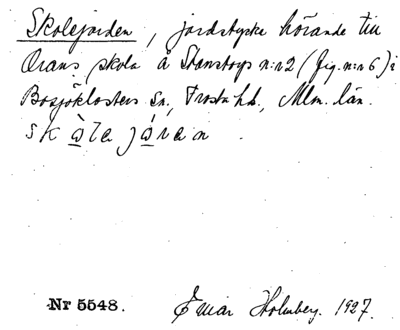 Skolejorden, jordstycke hörande till
Orans skola å Stenstorps n:r 2 (fig. n:r 6) i
Bosjöklosters Sn., Frosta hd., Mlm. län.
Nr 5548. Einar Holmberg. 1927.